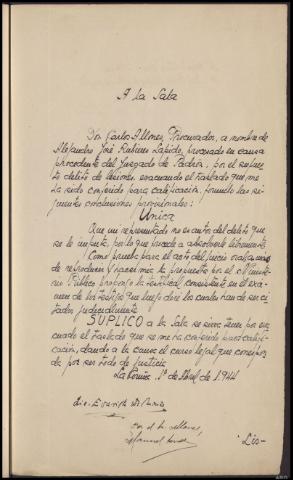 A la Sala
Don Carlos Allones, Procurador, a nombre de
Alejandro José Rubiero Lafido, procesado en causa
procedente del Juzgado de Padrón, por el supues-
to delito de lesiones, evacuando el traslado que me
ha sido conferido para calificación, formulo las si-
guientes conclusiones provisionales:
Única
Que mi representado no es autor del delito que
se le imputa, por lo que procede absolverle libremente.
Como prueba para el acto del juicio oral, además
de reproducir y hacer mía la propuesta por el Ministe-
rio Público propongo la testifical, consistente en el exa-
men de los testigos que luego diré los cuales han de ser ci-
tados judicialmente
SUPLICO a la Sala se sirva tener por eva-
cuado el traslado que se me ha conferido para califi-
cación, dando a la causa el curso legal que correspon-
da por ser todo de justicia.
La Coruña, 1º de Abril de 1.944
Lis-